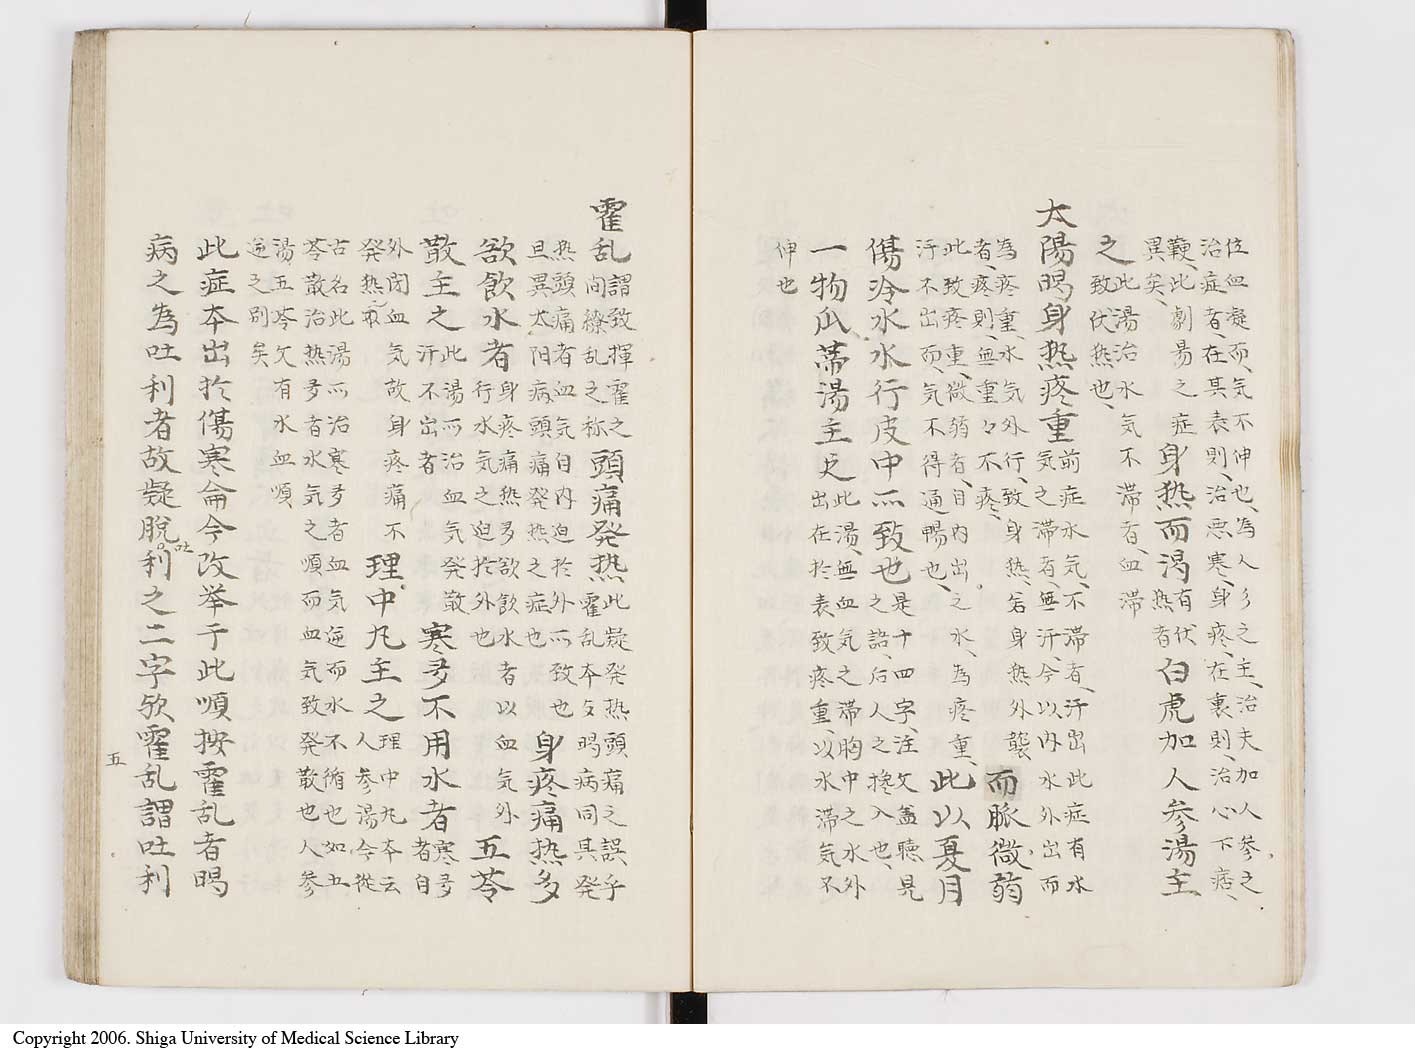 位血凝而、気不伸也、為人彡之主、治夫加人参之
治症者、在其表則、治悪寒、身疼、在裏則、治心下痞、
鞕、此劇易之症
異矣、
身热而渇有伏
热者
白虎加人参湯主
之此湯治水気不滞者、血滞
致伏热也、
太陽暍身热疼重前症水気、不滞者、汗出此症有水
気之滞者、無汗、今以内水外出而
為疼重、水気外行、致身热、若身热外襲
者、疼則、無重々不疼、
而脈微弱
此致疼重、微弱者、自内出之水、為疼重、
汗不出而、気不得通暢也、
此以夏月
傷冷水水行皮中所致也是十四字、注文盖聴晁
之誥、后人之搀入也、
一物瓜蒂湯主之此湯、無血気之滞胸中之水外
出在於表致疼重、以水滞気不
伸也
霍乱謂致揮霍之
向繚乱之称
頭痛発热此疑発热頭痛之誤乎
霍乱本攵暍病同其発
热頭痛者血気自内迫於外所致也
且異太阳病頭痛発热之症也
身疼痛热多
欲飲水者身疼痛热多欲飲水者以血気外
行水気之迫於外也
五苓
散主之此湯所治血気発散
汗不出者
寒多不用水者寒多
者自
外閉血気故身疼痛不
発热也
理中丸主之理中丸本云
人参湯今從
古名此湯所治寒多者血気逆而水不循也如五
苓散治热多者水気之順而血気致発散也人参
湯五苓欠有水血順
逆之別矣
此症本出於傷寒侖今改举于此順按霍乱者暍
病之為吐利者故疑脱吐利之二字欤霍乱謂吐利
五
Copyright 2006. Shiga University of Medical Science Library